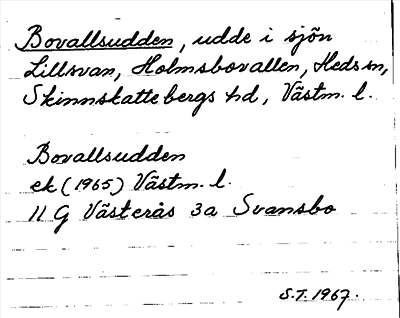 Bovallsudden, udde i sjön
Lillsvan, Holmsbovallen, Heds sn,
Skinnskattebergs hd, Västm. l.
Bovallsudden
ek (1965) Västm. l.
11 G Västerås 3a Svansbo
S.T. 1967.